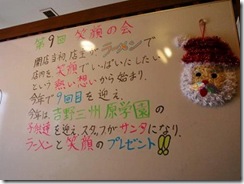 第9回 笑顔の会
開店当初、店主がラーメンで
店内を笑顔でいっぱいにしたい
という熱い想いから始まり、
今年で9回目を迎え、
今年は吉野三州原学園の
子供達を迎え、スタッフがサンタになり、
ラーメンと笑顔のプレゼント!!